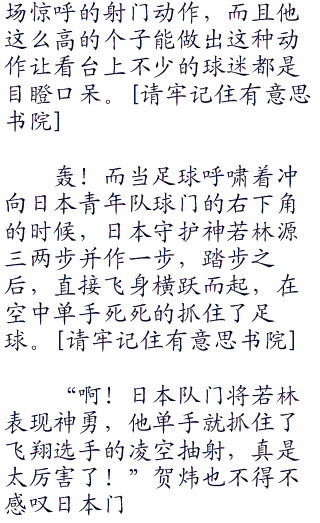 场惊呼的射门动作，而且他
这么高的个子能做出这种动
作让看台上不少的球迷都是
目瞪口呆。[请牢记住有意思
书院]
轰！而当足球呼啸着冲
向日本青年队球门的右下角
的时候，日本守护神若林源
三两步并作一步，踏步之
后，直接飞身横跃而起，在
空中单手死死的抓住了足
球。[请牢记住有意思书院]
“啊！日本队门将若林
表现神勇，他单手就抓住了
飞翔选手的凌空抽射，真是
太厉害了！”贺炜也不得不
感叹日本门